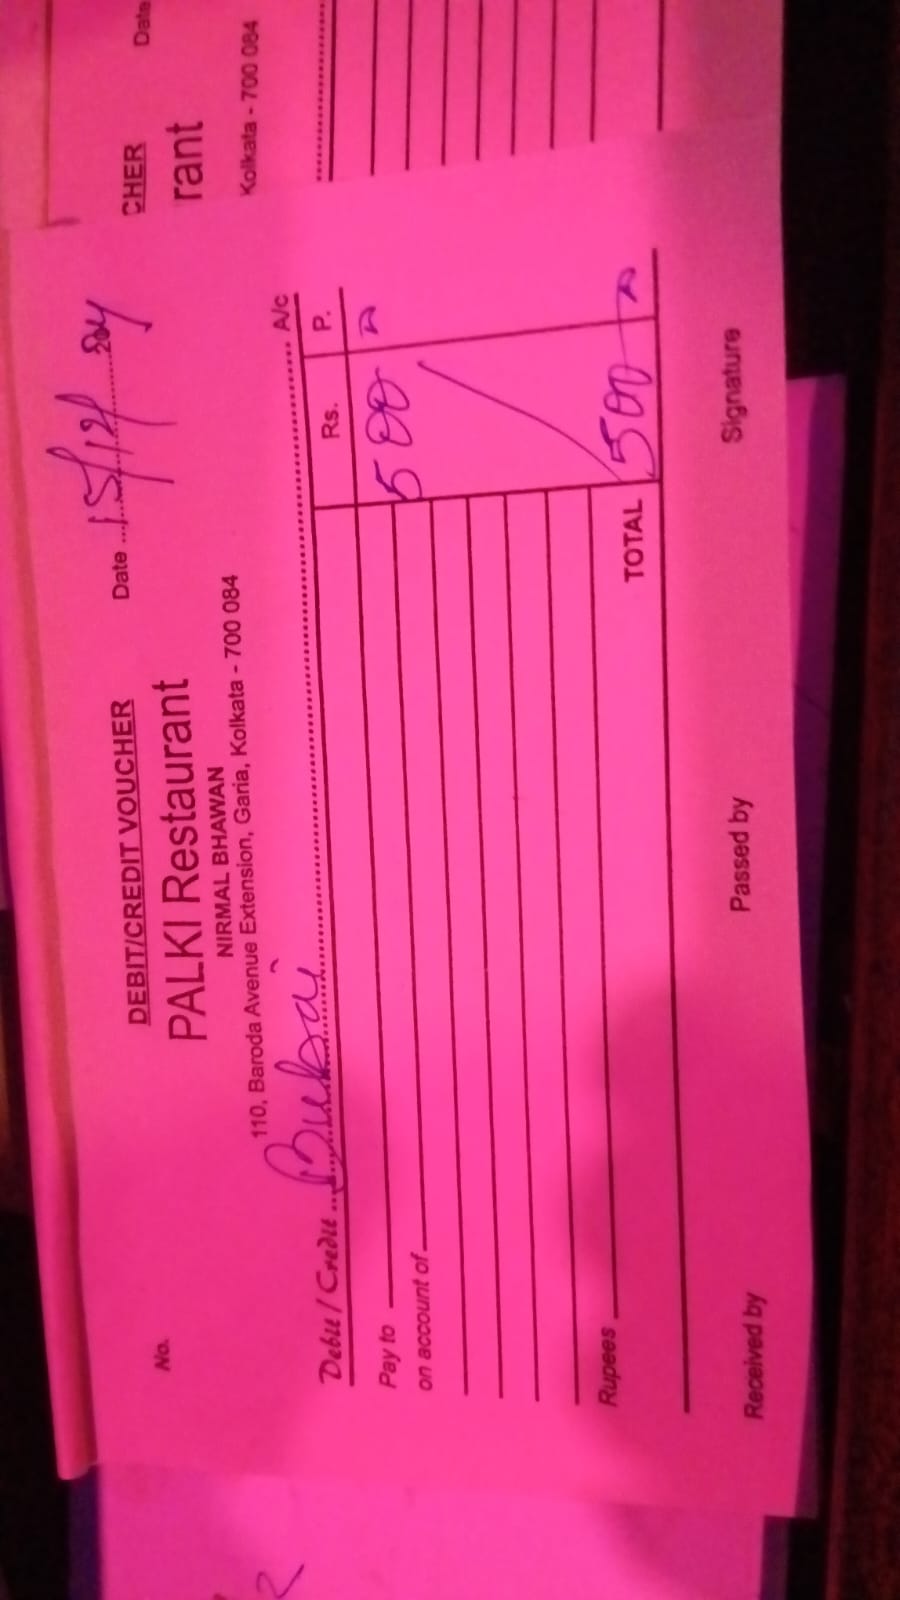 DEBIT/CREDIT VOUCHER
No.
Date 15/12/2024
PALKI Restaurant
NIRMAL BHAWAN
110, Baroda Avenue Extension, Garia, Kolkata - 700 084
Debit / Credit Bubai A/c
Rs. P.
Pay to 500
on account of
Rupees TOTAL 500
Received by Passed by Signature
CHER Date
rant
Kolkata - 700 084